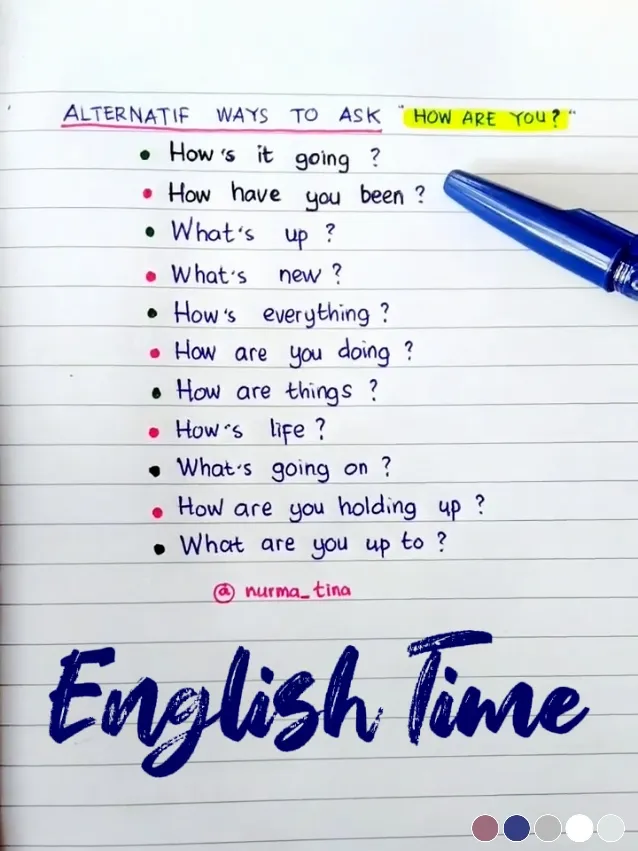 ALTERNATIF WAYS TO ASK "HOW ARE YOU?"
• How's it going ?
• How have you been ?
• What's up ?
• What's new ?
• How's everything ?
• How are you doing ?
• How are things ?
• How's life ?
• What's going on ?
• How are you holding up ?
• What are you up to ?
@ nurma_tina
English Time